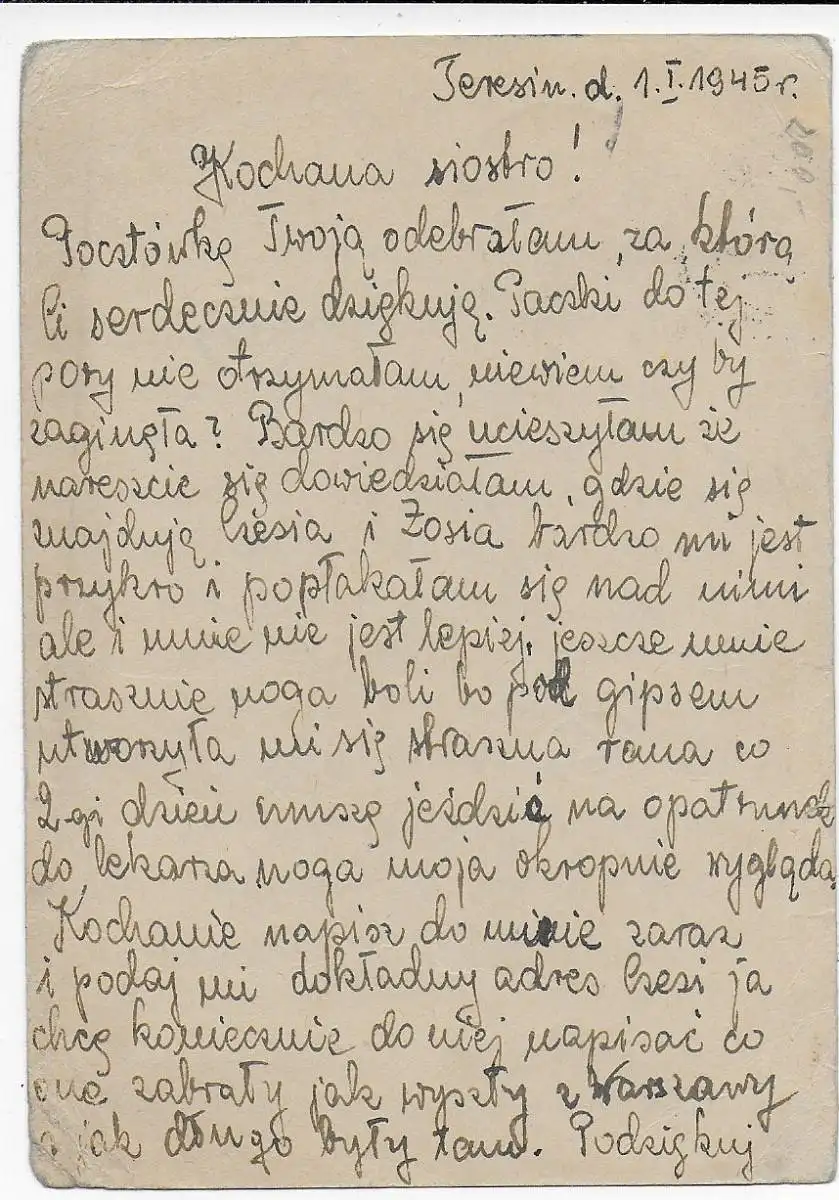 Teresin. d. 1.I.1945r.
Kochana siostro!
Pocztówkę Twoją odebrałam, za którą
Ci serdecznie dziękuję. Paczki do tej
pory nie otrzymałam, niewiem czy by
zaginęła? Bardzo się ucieszyłam że
nareszcie się dowiedziałam, gdzie się
znajdują Czesia i Zosia bardzo mi jest
przykro i popłakałam się nad nimi
ale i mnie nie jest lepiej, jeszcze mnie
strasznie noga boli bo pod gipsem
utworzyła mi się straszna rana co
2-gi dzień muszę jeździć na opatrunek
do lekarza noga moja okropnie wygląda.
Kochanie napisz do mnie zaraz
i podaj mi dokładny adres Czesi ja
chcę koniecznie do niej napisać co
one zabrały jak wyszły z Warszawy
i jak długo były tam. Podziękuj